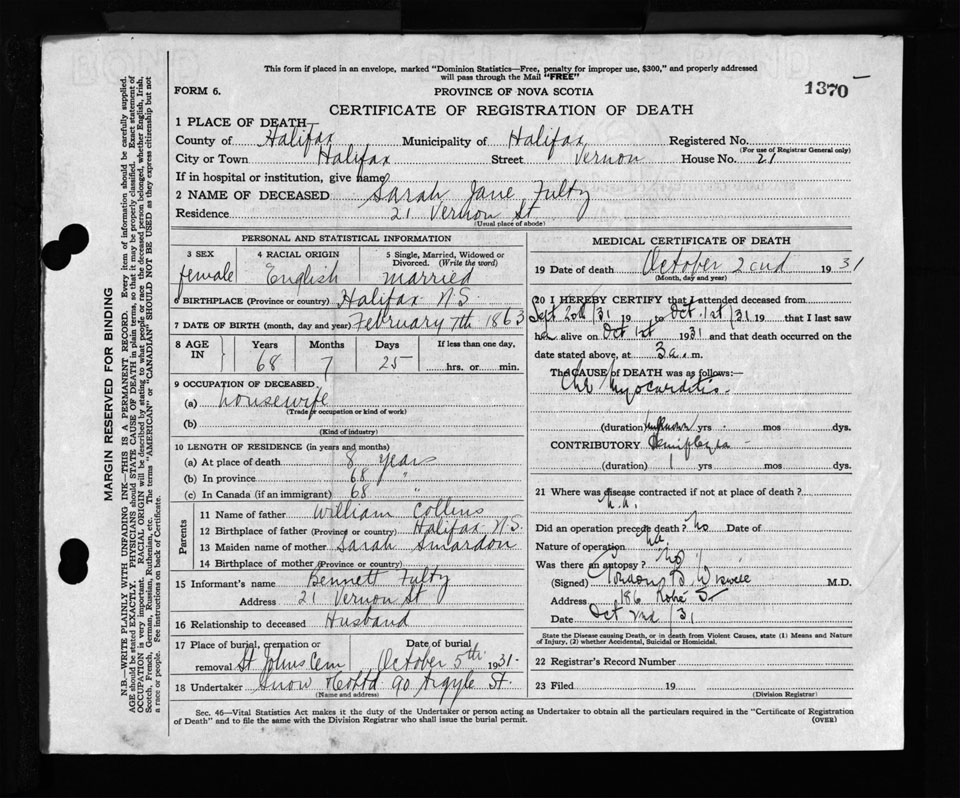 This form if placed in an envelope, marked "Dominion Statistics—Free, penalty for improper use, $300," and properly addressed
will pass through the Mail "FREE"
FORM 6.
PROVINCE OF NOVA SCOTIA
1370
CERTIFICATE OF REGISTRATION OF DEATH
1 PLACE OF DEATH
County of Halifax Municipality of Halifax Registered No.
(For use of Registrar General only)
City or Town Halifax Street Vernon House No. 21
If in hospital or institution, give name
2 NAME OF DECEASED Sarah Jane Fultz
Residence 21 Vernon St
(Usual place of abode)
PERSONAL AND STATISTICAL INFORMATION
3 SEX 4 RACIAL ORIGIN 5 Single, Married, Widowed or
Divorced. (Write the word)
female English married
6 BIRTHPLACE (Province or country) Halifax N.S.
7 DATE OF BIRTH (month, day and year) February 7th 1863
8 AGE IN Years Months Days If less than one day,
68 7 25 hrs. or min.
9 OCCUPATION OF DECEASED
(a) housewife
(Trade or occupation or kind of work)
(b)
(Kind of industry)
10 LENGTH OF RESIDENCE (in years and months)
(a) At place of death 8 years
(b) In province 68 "
(c) In Canada (if an immigrant) 68 "
Parents
11 Name of father William Collins
12 Birthplace of father (Province or country) Halifax N.S.
13 Maiden name of mother Sarah Smardon
14 Birthplace of mother (Province or country)
15 Informant's name Bennett Fultz
Address 21 Vernon St
16 Relationship to deceased Husband
17 Place of burial, cremation or Date of burial
removal St Johns Cem October 5th 1931
18 Undertaker Snow Co Ltd 90 Argyle St.
(Name and address)
MEDICAL CERTIFICATE OF DEATH
19 Date of death October 2cnd 1931
(Month, day and year)
20 I HEREBY CERTIFY that I attended deceased from
Sept 20th/31 19 to Oct. 1st/31 19 that I last saw
her alive on Oct 1st 1931 and that death occurred on the
date stated above, at 3 a. m.
The CAUSE of DEATH was as follows:—
Chr myocarditis.
(duration) unknown yrs mos dys.
CONTRIBUTORY Hemiplegia
(duration) 1 yrs mos dys.
21 Where was disease contracted if not at place of death?
n.a.
Did an operation precede death? no Date of
Nature of operation na.
Was there an autopsy? no
(Signed) Gordon B Wiswell M.D.
Address 186 Robie St
Date Oct 2nd /31
State the Disease causing Death, or in death from Violent Causes, state (1) Means and Nature
of Injury, (2) whether Accidental, Suicidal or Homicidal.
22 Registrar's Record Number
23 Filed 19
(Division Registrar)
Sec. 46—Vital Statistics Act makes it the duty of the Undertaker or person acting as Undertaker to obtain all the particulars required in the "Certificate of Registration
of Death" and to file the same with the Division Registrar who shall issue the burial permit.
(OVER)
MARGIN RESERVED FOR BINDING
N.B.—WRITE PLAINLY WITH UNFADING INK—THIS IS A PERMANENT RECORD. Every item of information should be carefully supplied.
AGE should be stated EXACTLY. PHYSICIANS should STATE CAUSE OF DEATH in plain terms, so that it may be properly classified. Exact statement of
OCCUPATION is very important. RACIAL ORIGIN will be described by stating to what people or race the deceased person belonged, whether English, Irish,
Scotch, French, German, Russian, Ruthenian, etc. The terms "AMERICAN" or "CANADIAN" SHOULD NOT BE USED as they express citizenship but not
a race or people. See instructions on back of Certificate.